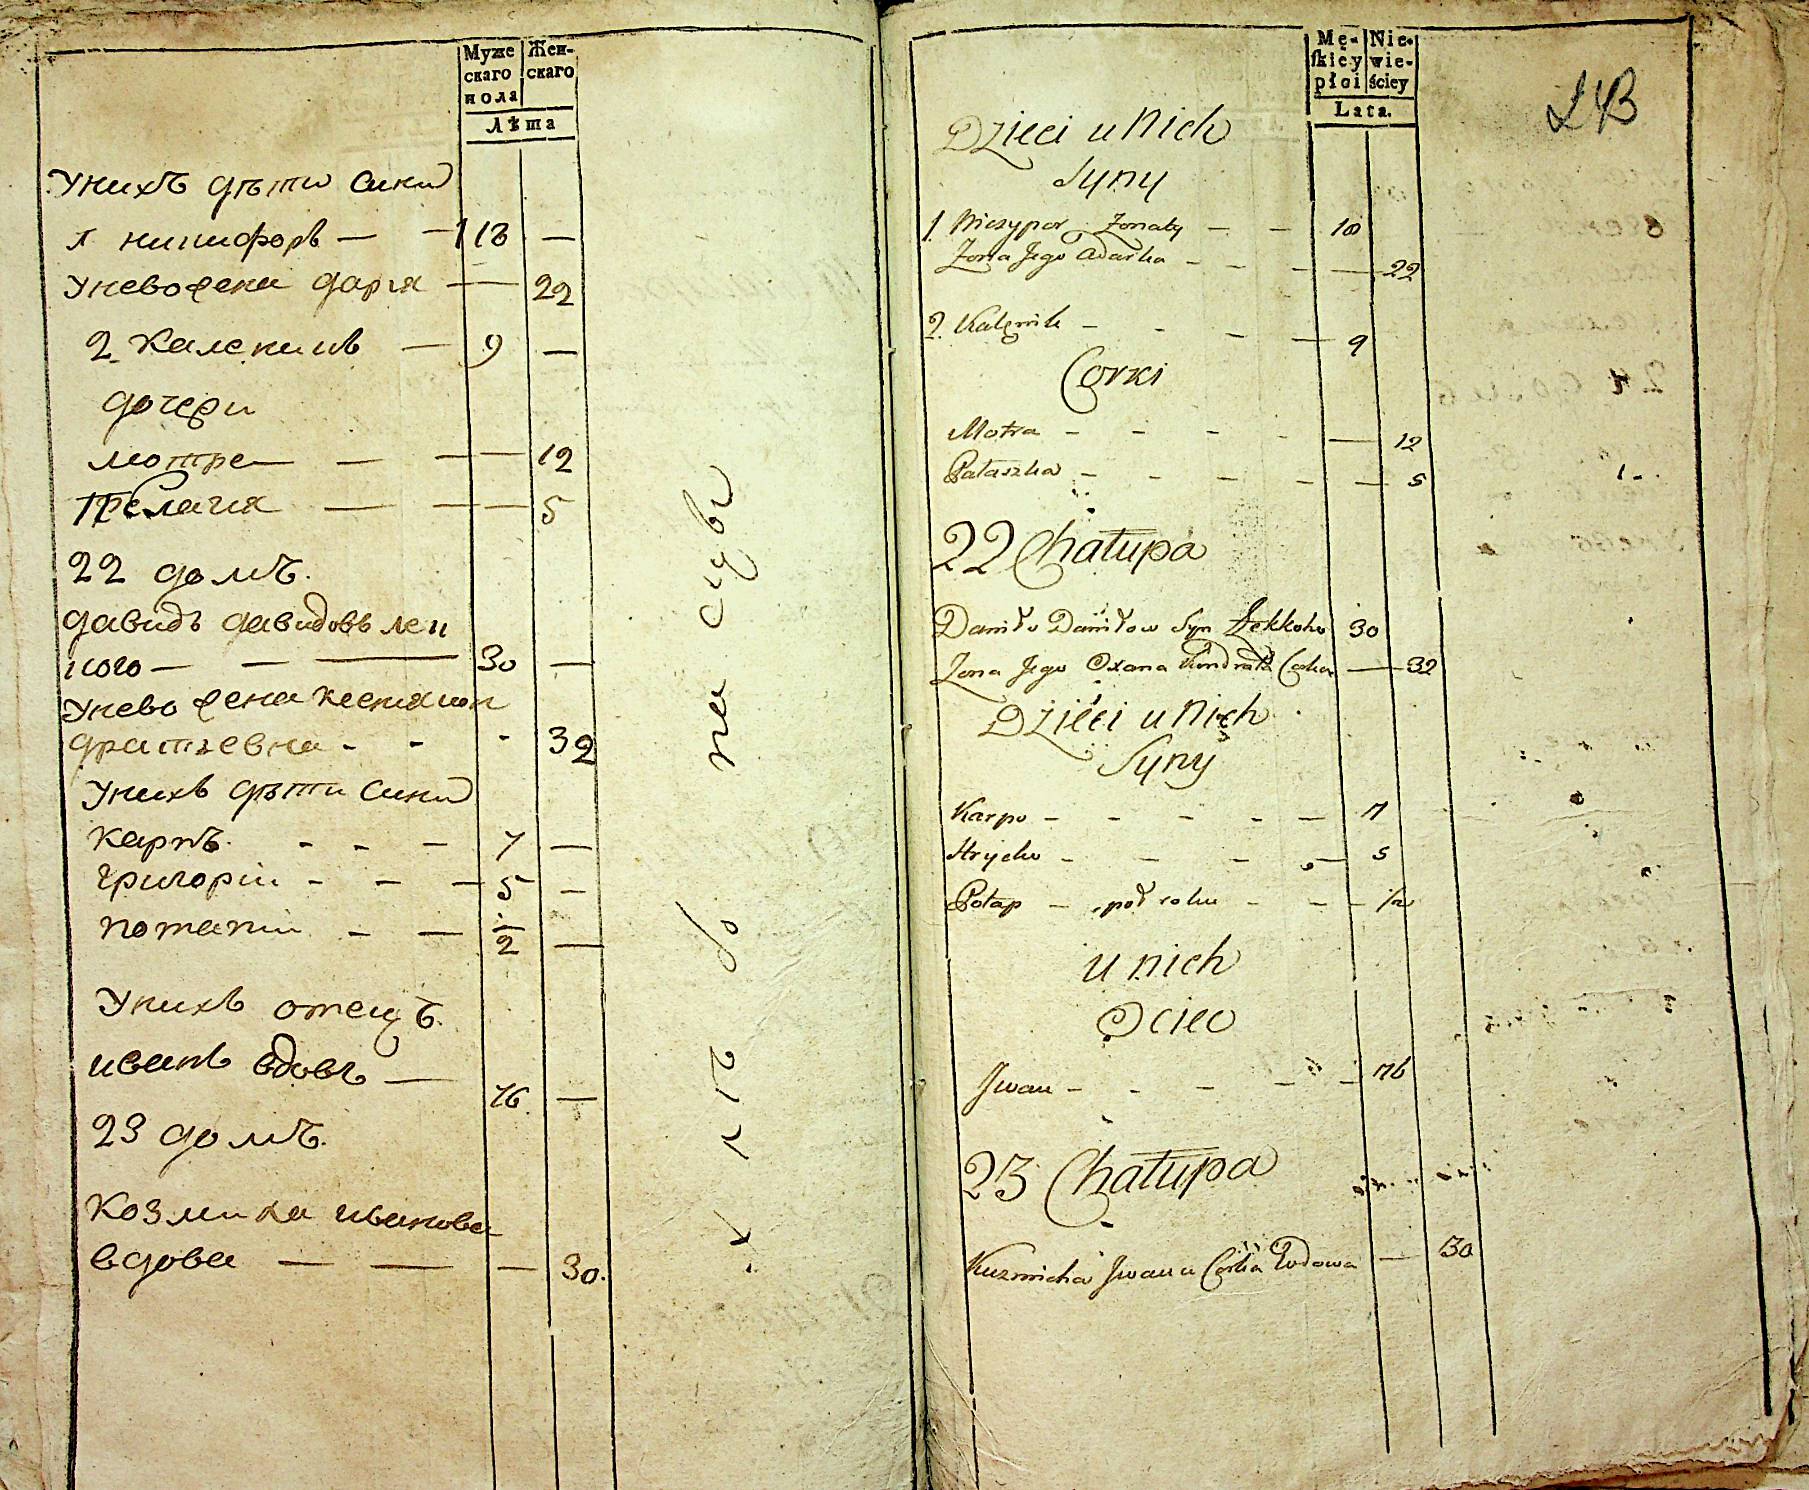 Муже
скаго
пола
Жен-
скаго
Лѣта
Унихъ дѣти сины
1 никифоръ — — 18 —
Унево жена дарья — — 22
2 каленикъ — 9 —
дочери
мотра — — — 12
Пелагия — — — 5
22 домъ.
давидъ давидовъ леи
кого — — — 30 —
Унево жена ксения кон
дратьевна - - - 32
Унихъ дѣти сини
карпъ. - - - 7 —
григории - - - 5 —
потапии - — 1/2 —
Унихъ отецъ.
иванъ вдовъ — 76 —
23 домъ.
козмиха иванова
вдова — — — 30.
Mę-
skiey
płci
Nie-
wie-
ściey
Lata.
Dzieci u Nich
Syny
1. Niczypor Zonaty - - 18
Zona Jego Adarka - - - — 22
2. Kalęnik - - - — 9
Corki
Motra - - - - — 12
Pałaszka - - - - - 5
22 Chałupa
Daniło Daniłow Syn 30
Zona Jego Oxana Kondrata Corka — 32
Dzieci u Nich
Syny
Karpo - - - - - 7
Hrycko - - - - 5
Potap - poł roku - - - 1/2
u nich
Ociec
Jwan - - - - - 76
23 Chałupa
Kuzmicha Jwana Corka Wdowa — 30